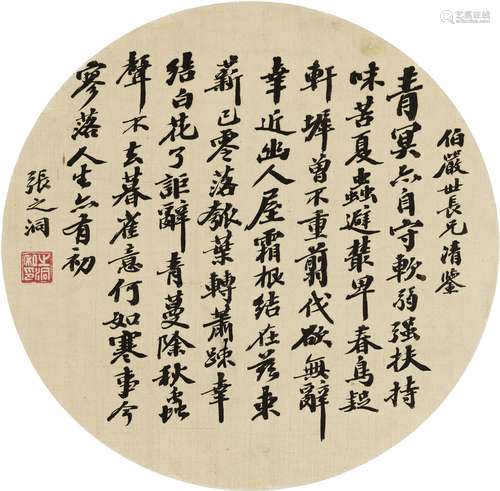 伯嚴世長兄清鑒
青冥亦自守軟弱强扶持
味苦夏蟲避叢卑春鳥疑
軒墀曾不重剪伐欲無辭
幸近幽人屋霜根結在茲束
薪已零落瓠葉轉蕭疎幸
結白花了詎辭青蔓除秋蟲
聲不去暮雀意何如寒事今
寥落人生亦有初
張之洞